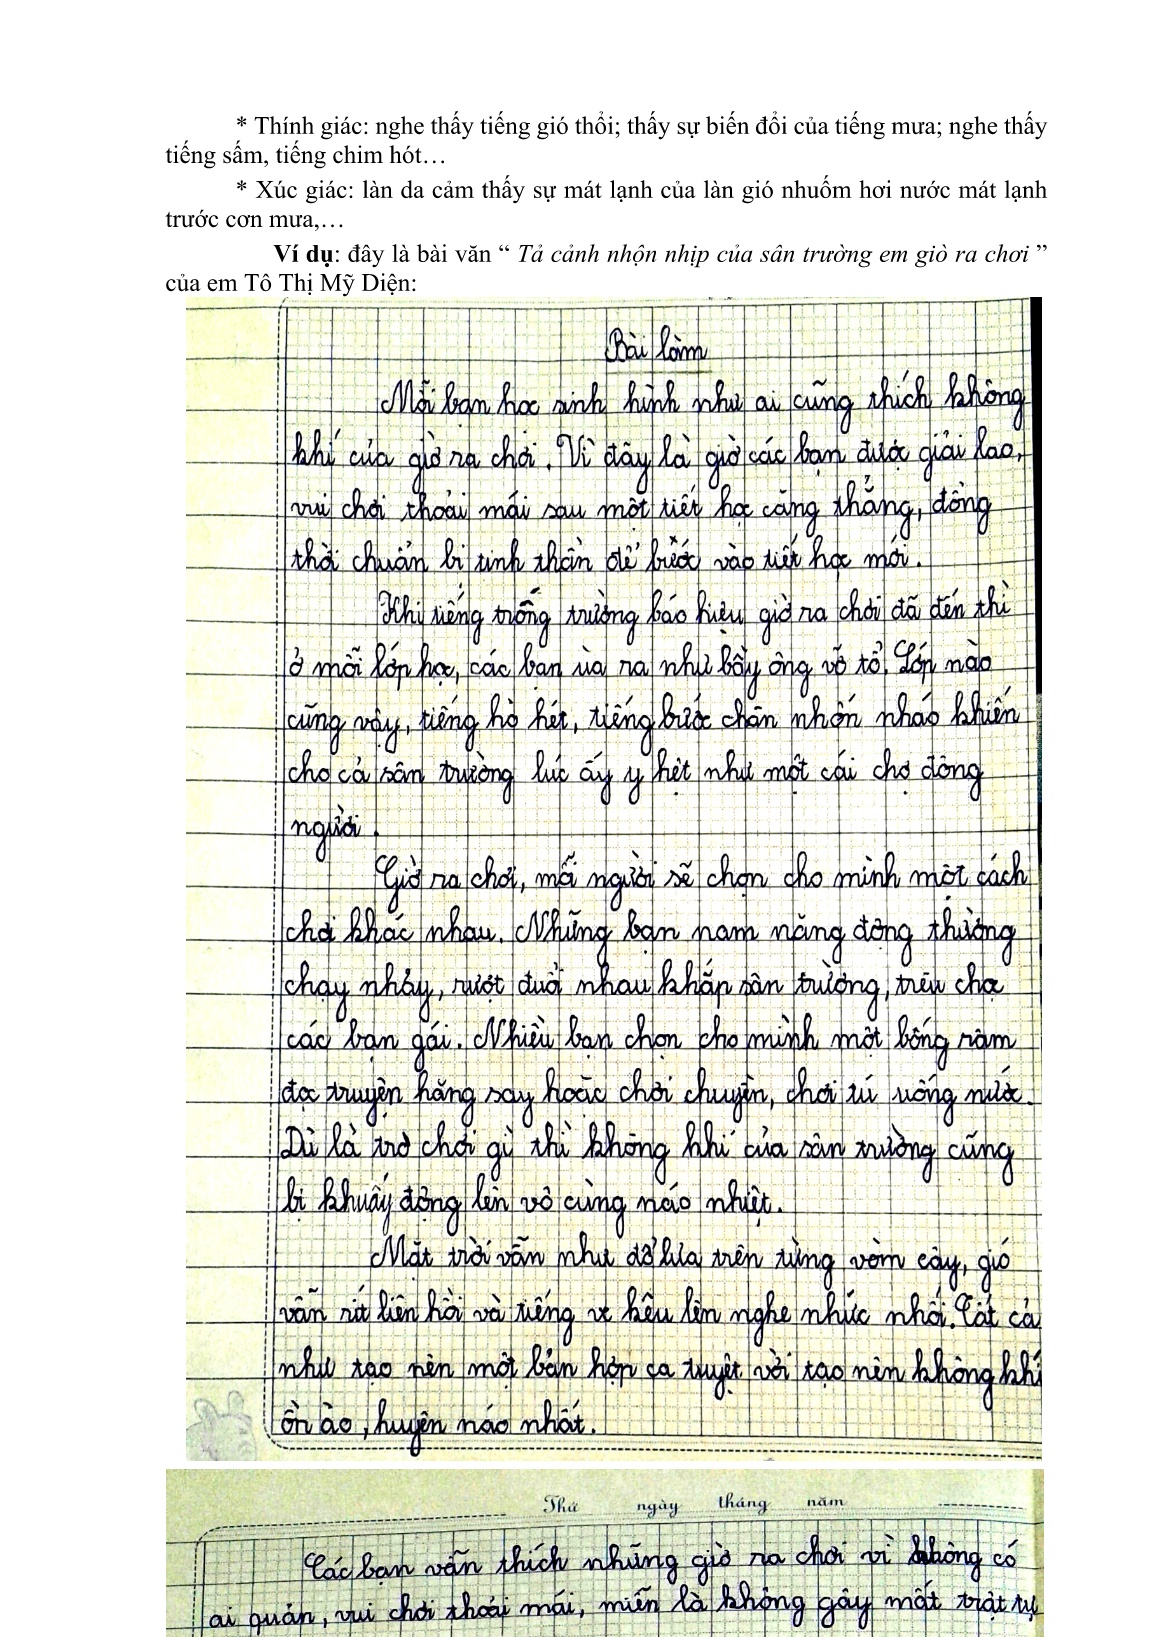 * Thính giác: nghe thấy tiếng gió thổi; thấy sự biến đổi của tiếng mưa; nghe thấy
tiếng sấm, tiếng chim hót…
* Xúc giác: làn da cảm thấy sự mát lạnh của làn gió nhuốm hơi nước mát lạnh
trước cơn mưa,…
Ví dụ: đây là bài văn “ Tả cảnh nhộn nhịp của sân trường em giờ ra chơi ”
của em Tô Thị Mỹ Diện:
Bài làm
Mỗi bạn học sinh hình như ai cũng thích không
khí của giờ ra chơi. Vì đây là giờ các bạn được giải lao,
vui chơi thoải mái sau một tiết học căng thẳng, đồng
thời chuẩn bị tinh thần để bước vào tiết học mới.
Khi tiếng trống trường báo hiệu giờ ra chơi đã đến thì
ở mỗi lớp học, các bạn ùa ra như bầy ông vỡ tổ. Lớp nào
cũng vậy, tiếng hò hét, tiếng bước chân nhốn nháo khiến
cho cả sân trường lúc ấy y hệt như một cái chợ đông
người.
Giờ ra chơi, mỗi người sẽ chọn cho mình một cách
chơi khác nhau. Những bạn nam năng động thường
chạy nhảy, rượt đuổi nhau khắp sân trường, trêu chọc
các bạn gái. Nhiều bạn chọn cho mình một bóng râm
đọc truyện hăng say hoặc chơi chuyền, chơi tú uống nước.
Dù là trò chơi gì thì không khí của sân trường cũng
bị khuấy động lên vô cùng náo nhiệt.
Mặt trời vẫn như đổ lửa trên từng vòm cây, gió
vẫn rít liên hồi và tiếng ve kêu lên nghe nhức nhối. Tất cả
như tạo nên một bản hợp ca tuyệt vời tạo nên không khí
ồn ào, huyên náo nhất.
Thứ ngày tháng năm
Các bạn vẫn thích những giờ ra chơi vì không có
ai quản, vui chơi thoải mái, miễn là không gây mất trật tự